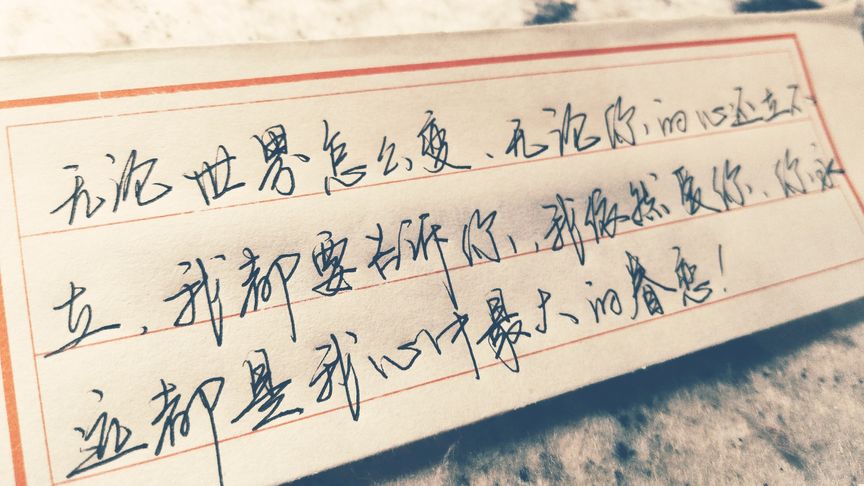 无论世界怎么变、无论你的心还立不
立,我都要告诉你,我依然爱你、你永
远都是我心中最大的眷恋!